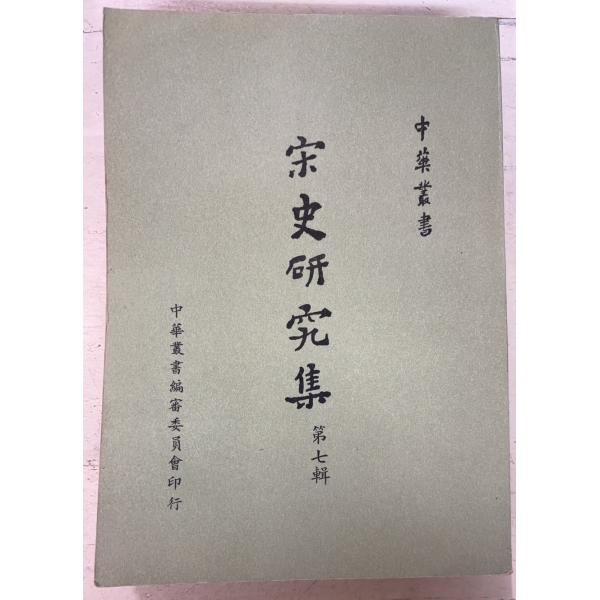 中華叢書
宋史研究集
第七輯
中華叢書編審委員會印行